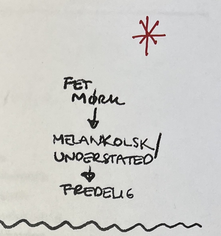 FET
MØRK
MELANKOLSK/
UNDERSTATED
FREDELIG